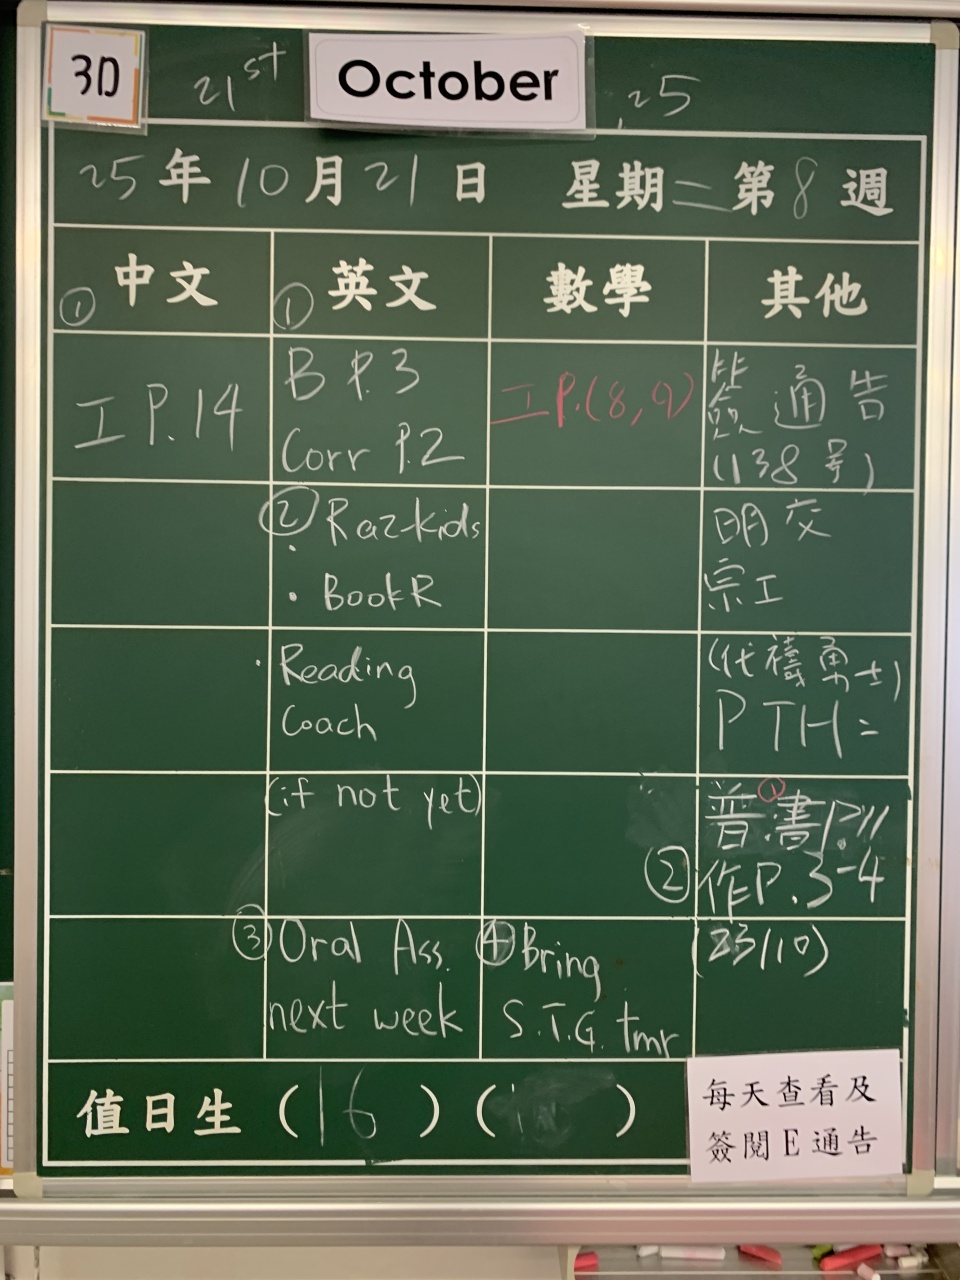 3D
21st October, 25
25年10月21日 星期二第8週
① 中文
① 英文
數學
其他
工 P.14
B P.3
Corr P.2
工 P.(8,9)
簽通告
(138号)
② Razkids
• BookR
明交
宗工
• Reading
Coach
(代禱勇士)
PTH =
(if not yet)
① 普書P.11
② 作P.3-4
③ Oral Ass.
next week
④ Bring
S.T.G. tmr
(23/10)
值日生 (16) ( )
每天查看及
簽閱E通告